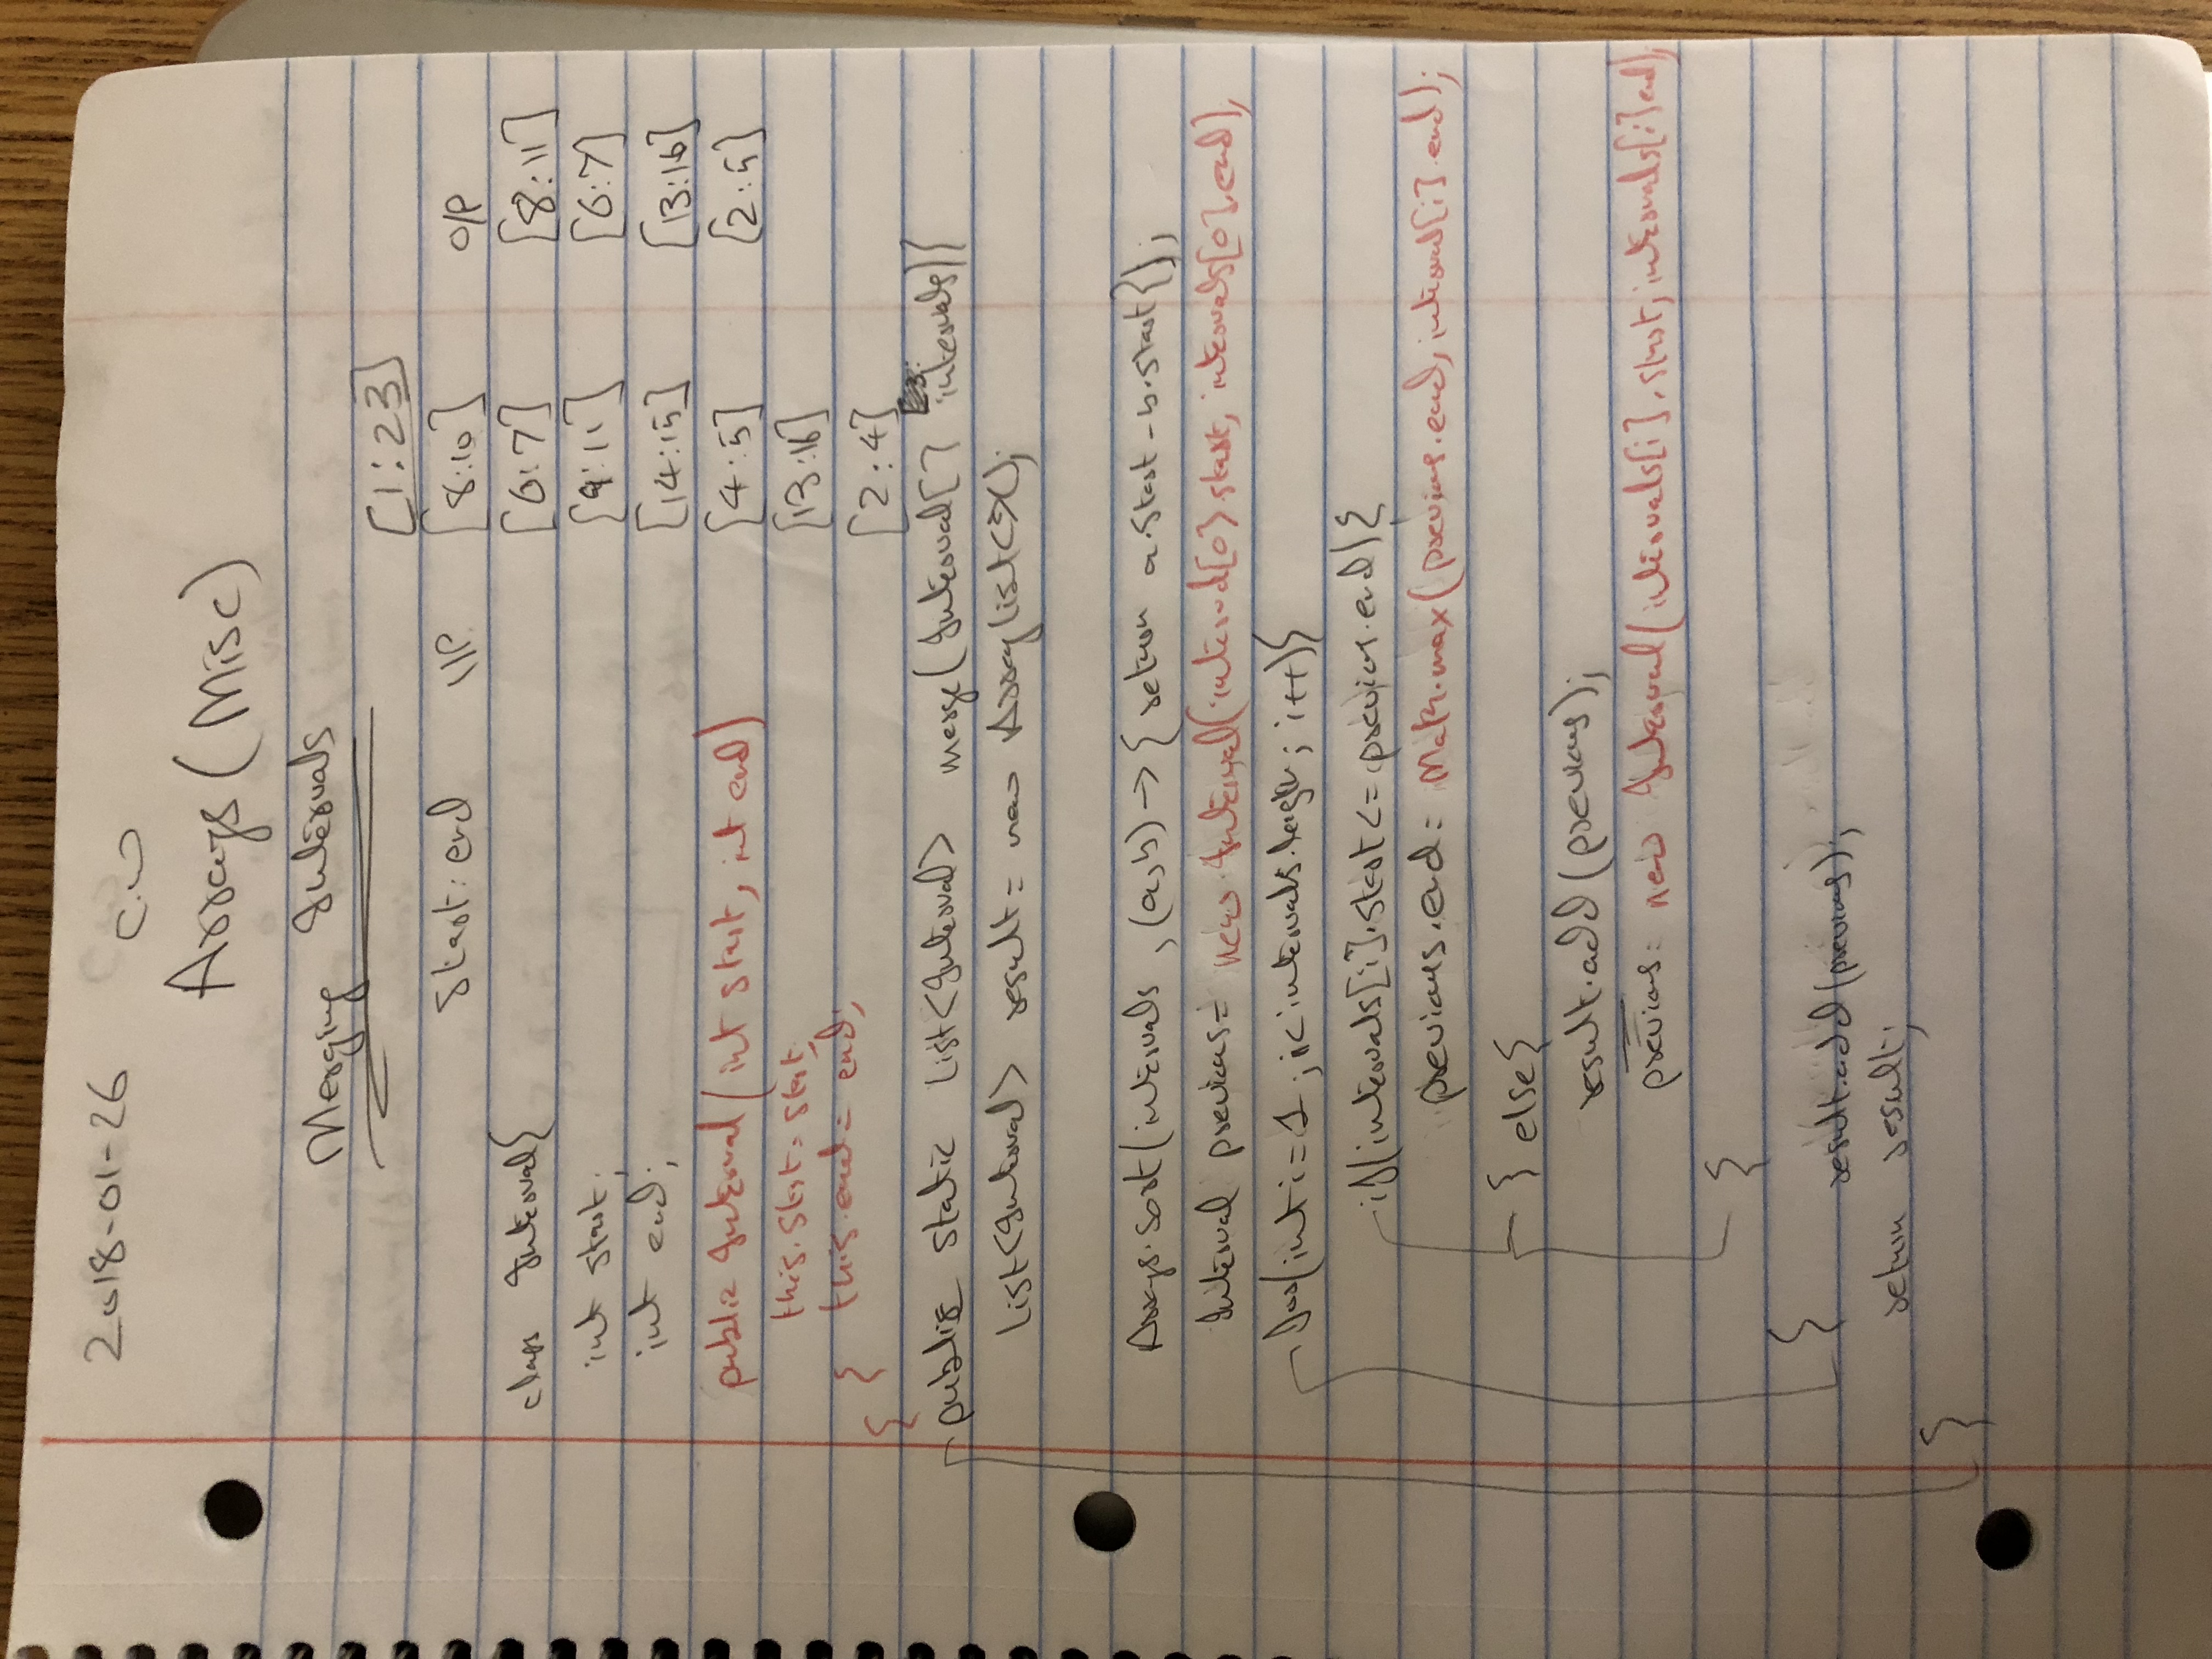 2018-01-26
C.W
Arrays (Misc)
Merging Intervals
[1:23]
Start:end I/P [8:10] O/P
class Interval{ [6:7] [8:11]
int start; [9:11] [6:7]
int end; [14:15] [13:16]
public Interval(int start, int end) [4:5] [2:5]
this.start = start; [13:16]
} this.end = end;
} [2:4]
public static List<Interval> merge(Interval[] intervals){
List<Interval> result = new ArrayList<>();
Arrays.sort(intervals, (a,b) -> {return a.start - b.start});
Interval previous = new Interval(interval[0].start, intervals[0].end);
for(int i=1; i<intervals.length; i++){
if(intervals[i].start <= previous.end){
previous.end = Math.max(previous.end, interval[i].end);
} else{
result.add(previous);
previous = new Interval(intervals[i].start, intervals[i].end);
}
}
result.add(previous);
return result;
}